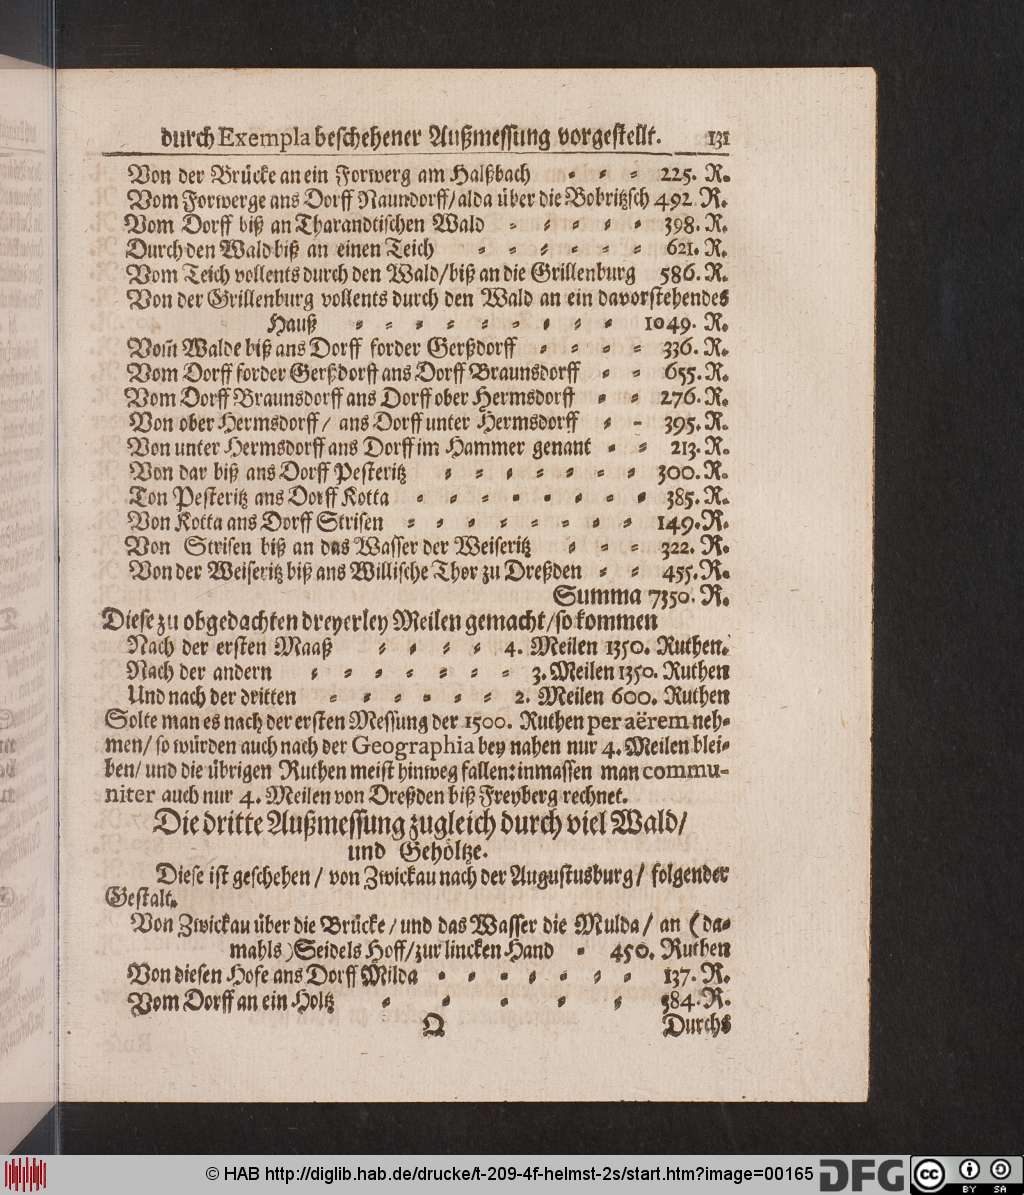 durch Exempla beschehener Außmessung vorgestellt. 131
Von der Brücke an ein Forwerg am Halßbach = = = 225. R.
Vom Forwerge ans Dorff Naundorff/ alda über die Bobritzsch 492. R.
Vom Dorff biß an Tharandtischen Wald = = = = = 398. R.
Durch den Wald biß an einen Teich = = = = = = 621. R.
Vom Teich vollents durch den Wald/ biß an die Grillenburg 586. R.
Von der Grillenburg vollents durch den Wald an ein davorstehendes
Hauß = = = = = = = = = 1049. R.
Vom̃ Walde biß ans Dorff forder Gerßdorff = = = = 336. R.
Vom Dorff forder Gerßdorff ans Dorff Braunsdorff = = 655. R.
Vom Dorff Braunsdorff ans Dorff ober Hermsdorff = = 276. R.
Von ober Hermsdorff/ ans Dorff unter Hermsdorff = = 395. R.
Von unter Hermsdorff ans Dorff im Hammer genant = = 213. R.
Von dar biß ans Dorff Pesteritz = = = = = = = 300. R.
Ton Pesteritz ans Dorff Kotta = = = = = = = = 385. R.
Von Kotta ans Dorff Strisen = = = = = = = = 149. R.
Von Strisen biß an das Wasser der Weiseritz = = = 322. R.
Von der Weiseritz biß ans Willische Thor zu Dreßden = = 455. R.
Summa 7350. R.
Diese zu obgedachten dreyerley Meilen gemacht/ so kommen
Nach der ersten Maaß = = = = 4. Meilen 1350. Ruthen.
Nach der andern = = = = = = = 3. Meilen 1350. Ruthen
Und nach der dritten = = = = = = 2. Meilen 600. Ruthen
Solte man es nach der ersten Messung der 1500. Ruthen per aërem neh=
men/ so würden auch nach der Geographia bey nahen nur 4. Meilen blei=
ben/ und die übrigen Ruthen meist hinweg fallen: inmassen man commu-
niter auch nur 4. Meilen von Dreßden biß Freyberg rechnet.
Die dritte Außmessung zugleich durch viel Wald/
und Gehöltze.
Diese ist geschehen/ von Zwickau nach der Augustusburg/ folgender
Gestalt.
Von Zwickau über die Brücke/ und das Wasser die Mulda/ an (da=
mahls) Seidels Hoff/ zur lincken Hand = 450. Ruthen
Von diesen Hofe ans Dorff Milda = = = = = = = 137. R.
Vom Dorff an ein Holtz = = = = = 584. R.
Q Durchs
© HAB http://diglib.hab.de/drucke/t-209-4f-helmst-2s/start.htm?image=00165 DFG cc BY SA